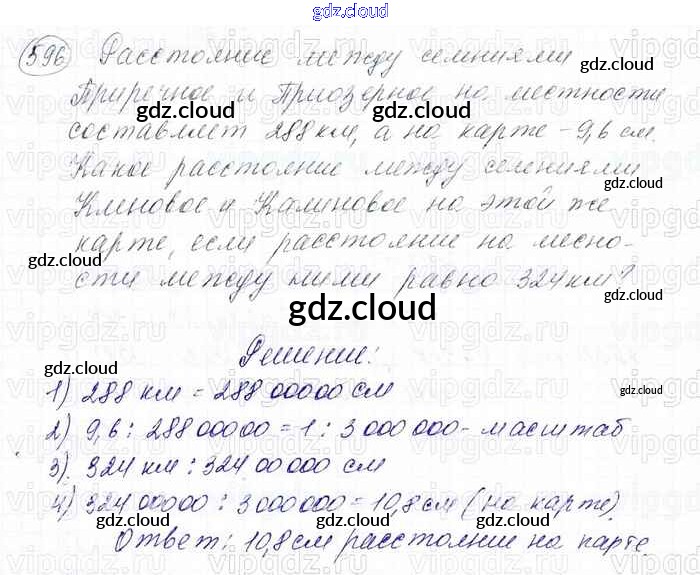 gdz.cloud
596 Расстояние между селениями
Приречное и Приозерное на местности
gdz.cloud gdz.cloud
составляет 288 км, а на карте - 9,6 см.
Какое расстояние между селениями
gdz.cloud
Кленовое и Калиновое на этой же
gdz.cloud
карте, если расстояние на месно-
gdz.cloud
сти между ними равно 324 км?
gdz.cloud
gdz.cloud
Решение:
gdz.cloud
1) 288 км = 28800000 см
gdz.cloud
2) 9,6 : 28800000 = 1 : 3000000 - масштаб
gdz.cloud
3) 324 км : 32400000 см
4) 32400000 : 3000000 = 10,8 см (на карте)
gdz.cloud gdz.cloud gdz.cloud
Ответ: 10,8 см расстояние на карте.